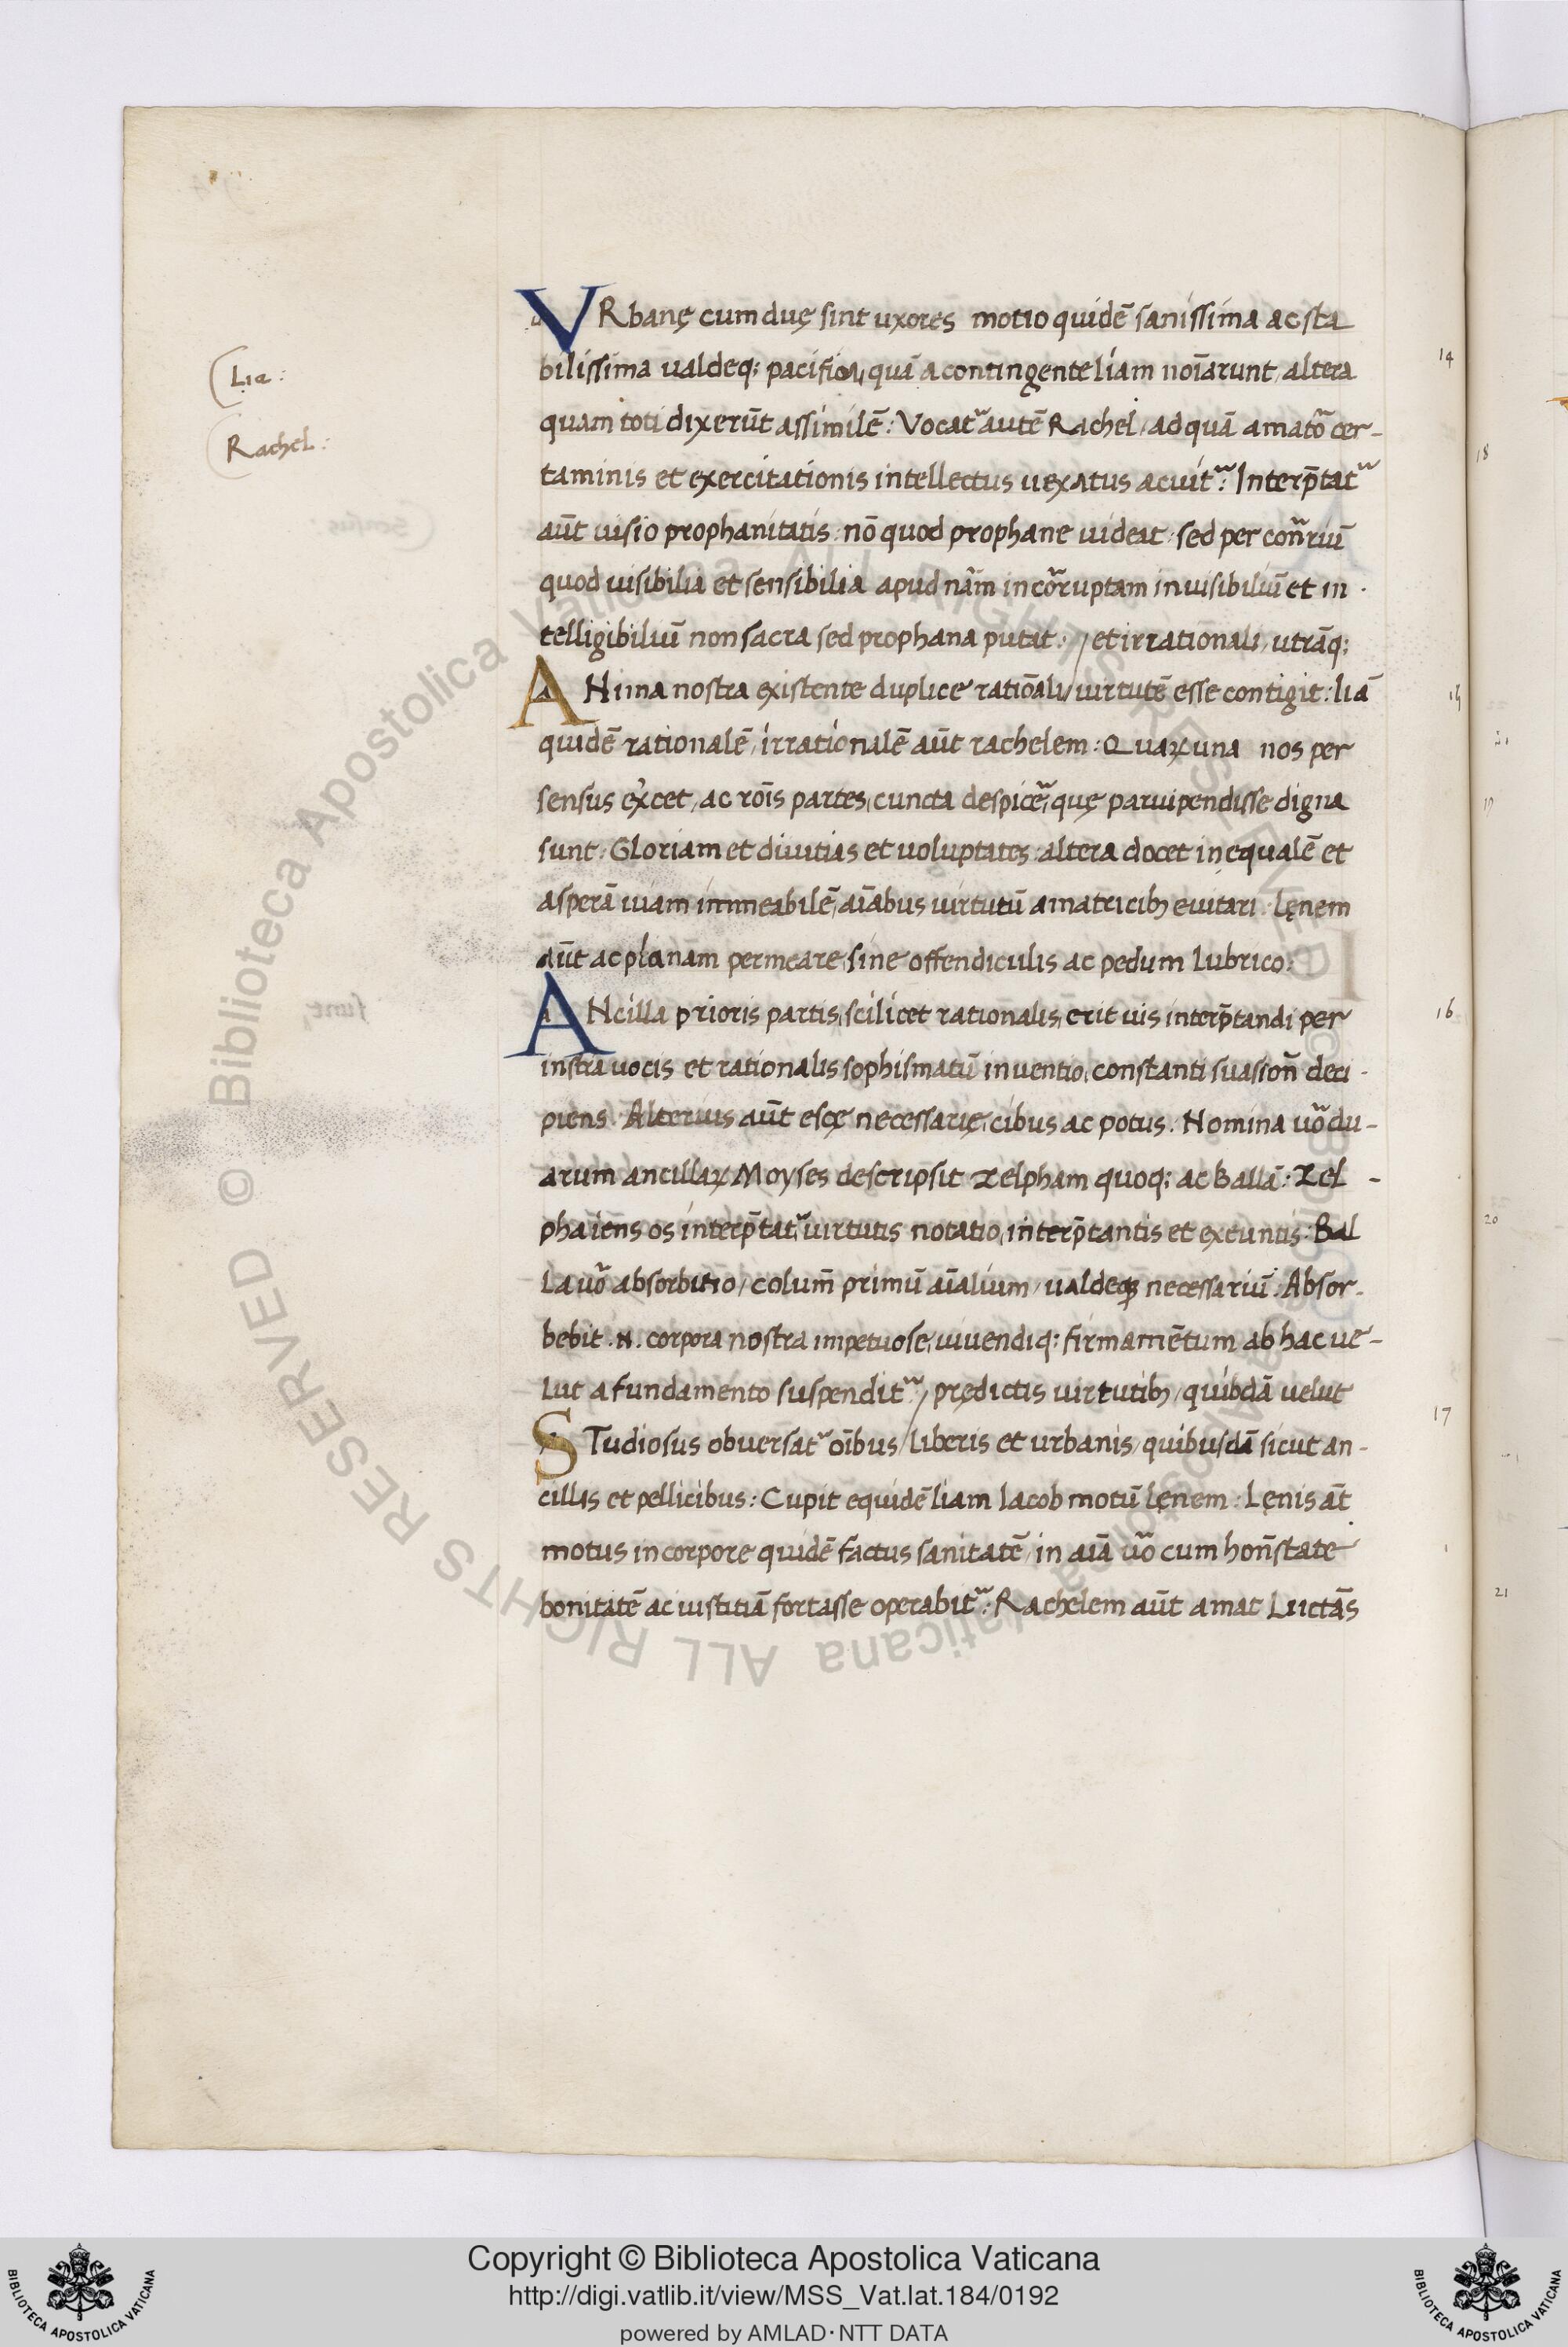 Lia:
Rachel:
VRbanę cum duę sint uxores motio quidē sanissima ac sta
bilissima ualdeq; pacifica, quā a contingente liam noīarunt, altera
quam toti dixerūt assimilē: Vocat᷑ autē Rachel, ad quā amato᷑ cer-
taminis et exercitationis intellectus uexatus acuit᷑: Interp̄tat᷑
aūt uisio prophanitatis: nō quod prophane uideat: sed per con᷑riū
quod uisibilia et sensibilia apud nām incorruptam inuisibiliū et in-
telligibiliū non sacra sed prophana putat: / et irrationali, utrāq;
ANima nostra existente duplice rationali / uirtutē esse contigit: liā
quidē rationalē, irrationalē aūt rachelem: Quaꝝ una nos per
sensus ex᷑cet, ac roīs partes, cuncta despice᷑, quę paruipendisse digna
sunt: Gloriam et diuitias et uoluptates: altera docet inequalē et
asperā uiam immeabilē, aīabus uirtutū amatricibꝫ euitari. Lęnem
aūt ac planam permeare, sine offendiculis ac pedum lubrico:
ANcilla prioris partis, scilicet rationalis, erit uis interp̄tandi per
instrā uocis et rationalis sophismatū inuentio, constanti suasion̄ deci-
piens. Alterius aūt escę necessarię, cibus ac potus. Nomina uo᷑ du-
arum ancillaꝝ Moyses descripsit Zelpham quoq; ac Ballā: Zel-
pha iens os interp̄tat᷑, uirtutis notatio, interp̄tantis et exeuntis: Bal
la uo᷑ absorbitio, colum̄ primū aīalium, ualdeqꝫ necessariū: Absor-
bebit .N. corpora nostra impetuose, uiuendiq; firmamētum ab hac ue-
lut a fundamento suspendit᷑: / prędictis uirtutibꝫ, quibdā uelut
STudiosus obuersat᷑ oībus / liberis et urbanis, quibusdā sicut an-
cillis et pellicibus: Cupit equidē liam Iacob motū lęnem: Lęnis āt
motus in corpore quidē factus sanitatē, in aīā uo᷑ cum hon̄state
bonitatē ac iustitiā fortasse operabit᷑: Rachelem aūt amat Luctās
14
15
16
17
18
19
20
21
© Biblioteca Apostolica Vaticana ALL RIGHTS RESERVED
Copyright © Biblioteca Apostolica Vaticana
http://digi.vatlib.it/view/MSS_Vat.lat.184/0192
powered by AMLAD·NTT DATA
BIBLIOTECA APOSTOLICA VATICANA
BIBLIOTECA APOSTOLICA VATICANA